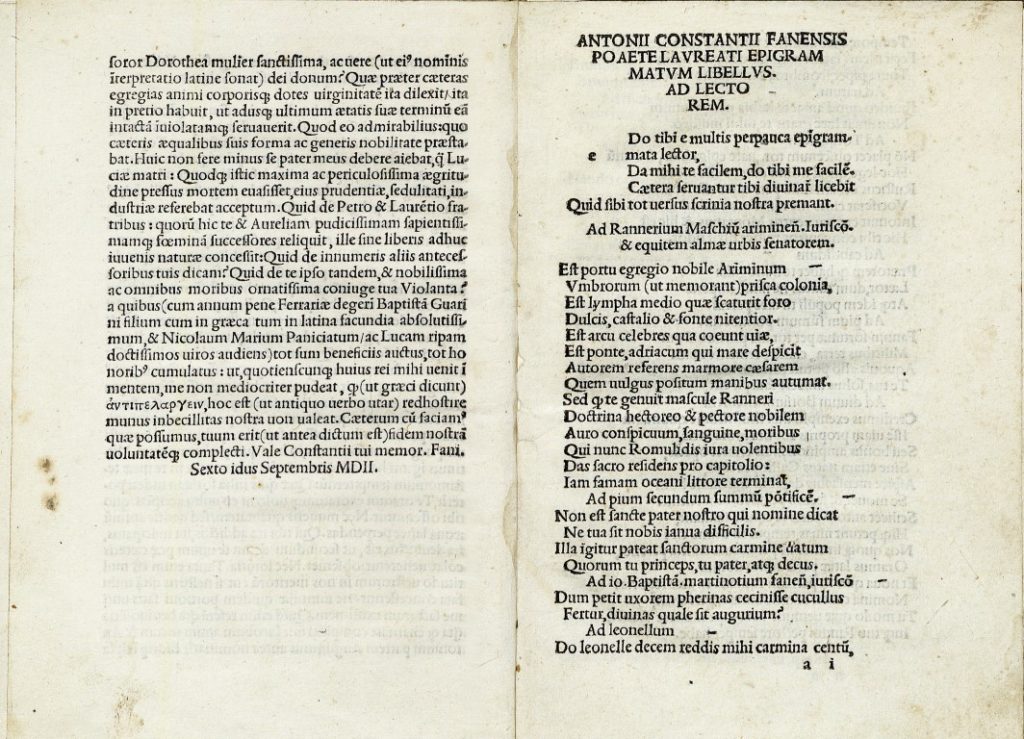 soror Dorothea mulier sanctissima, ac uere (ut ei⁹ nominis
īterpretatio latine sonat) dei donum? Quæ præter cæteras
egregias animi corporisq; dotes uirginitatē ita dilexit/ ita
in pretio habuit, ut adusq; ultimum ætatis suæ terminū eā
intactā īuiolatamq; seruauerit. Quod eo admirabilius: quo
cæteris æqualibus suis forma ac generis nobilitate præsta-
bat. Huic non fere minus se pater meus debere aiebat, q̄ Lu-
ciæ matri: Quodq; istic maxima ac periculosissima ægritu-
dine pressus mortem euasisset, eius prudentiæ, sedulitati, in-
dustriæ referebat acceptum. Quid de Petro & Laurētio fra-
tribus: quorū hic te & Aureliam pudicissimam sapientissi-
mamq; fœminā successores reliquit, ille sine liberis adhuc
iuuenis naturæ concessit: Quid de innumeris aliis anteces-
soribus tuis dicam? Quid de te ipso tandem, & nobilissima
ac omnibus moribus ornatissima coniuge tua Violanta?
a quibus (cum annum pene Ferrariæ degerī Baptistā Guari
ni filium cum in græca tum in latina facundia absolutissi-
mum, & Nicolaum Marium Paniciatum/ ac Lucam ripam
doctissimos uiros audiens) tot sum beneficiis auctus, tot ho
norib⁹ cumulatus: ut, quotienscunq; huius rei mihi uenit ī
mentem, me non mediocriter pudeat, q̊ (ut græci dicunt)
ἀντιπελαργεῖν, hoc est (ut antiquo uerbo utar) redhostire
munus inbecillitas nostra non ualeat. Cæterum cū faciam⁹
quæ possumus, tuum erit (ut antea dictum est) fidem nostrā
uoluntatēq; complecti. Vale Constantii tui memor. Fani.
Sexto idus Septembris MDII.
ANTONII CONSTANTII FANENSIS
POAETE LAVREATI EPIGRAM
MATVM LIBELLVS.
AD LECTO
REM.
Do tibi e multis perpauca epīgram-
e mata lector,
Da mihi te facilem, do tibi me facilē.
Cætera seruantur tibi diuinaƒ licebit
Quid sibi tot uersus scrinia nostra premant.
Ad Rannerium Maschiū ariminen̄. Iuriscō.
& equitem almæ urbis senatorem.
Est portu egregio nobile Ariminum
Vmbrorum (ut memorant) prisca colonia,
Est lympha medio quæ scaturit foro
Dulcis, castalio & fonte nitentior.
Est arcu celebres qua coeunt uiæ,
Est ponte, adriacum qui mare despicit
Autorem referens marmore cæsarem
Quem uulgus positum manibus autumat.
Sed q̊ te genuit mascule Ranneri
Doctrina hectoreo & pectore nobilem
Auro conspicuum, sanguine, moribus
Qui nunc Romulidis iura uolentibus
Das sacro residens pro capitolio:
Iam famam oceani littore terminat,
Ad pium secundum summū pōtificē.
Non est sancte pater nostro qui nomine dicat
Ne tua sit nobis ianua difficilis.
Illa igitur pateat sanctorum carmine uatum
Quorum tu princeps, tu pater, atq; decus.
Ad io. Baptistā. martinotium fanen̄. iuriscō
Dum petit uxorem pherinas cecinisse cucullus
Fertur, diuinas quale sit augurium?
Ad leonellum
Do leonelle decem reddis mihi carmina centū,
a i